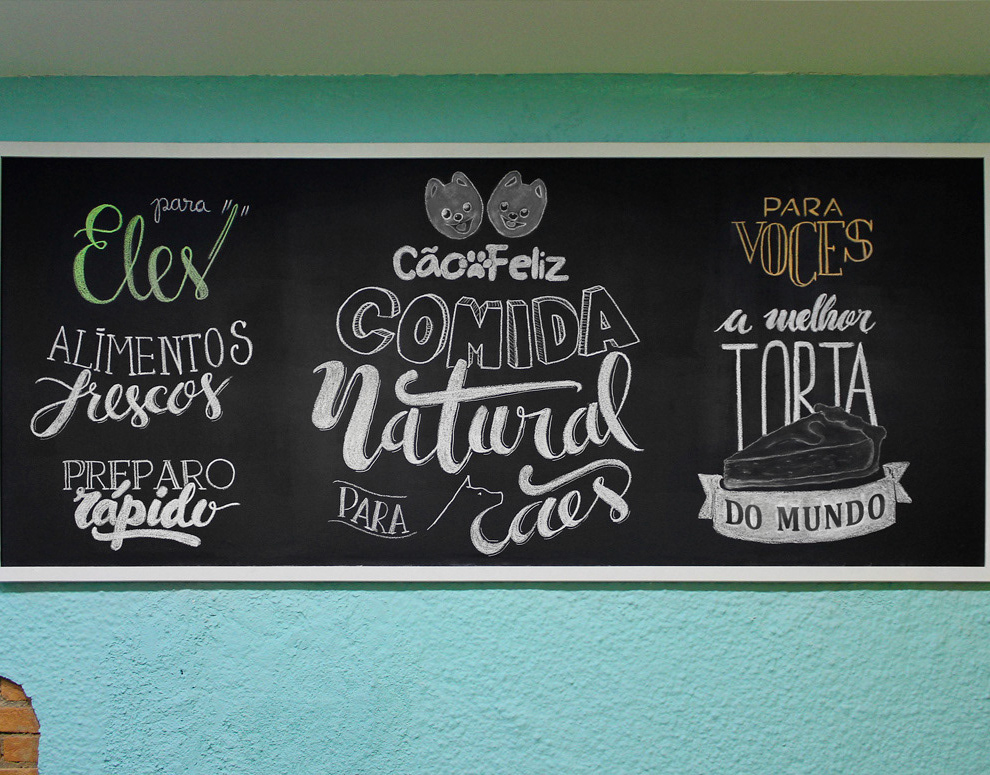 para
Eles
ALIMENTOS
frescos
PREPARO
rápido
Cão Feliz
COMIDA
Natural
PARA cães
PARA
VOCES
a melhor
TORTA
DO MUNDO